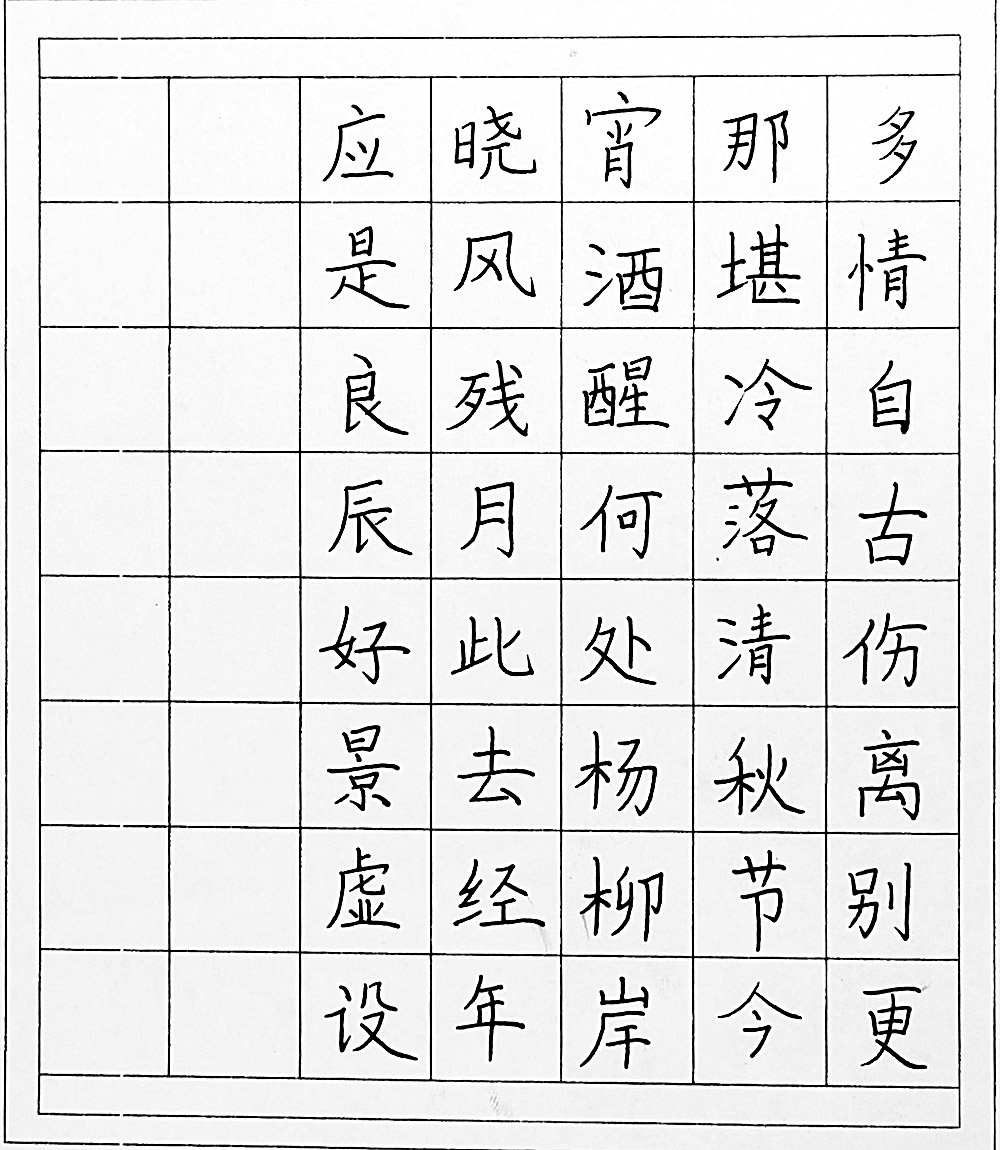 多情自古伤离别更
那堪冷落清秋节今
宵酒醒何处杨柳岸
晓风残月此去经年
应是良辰好景虚设